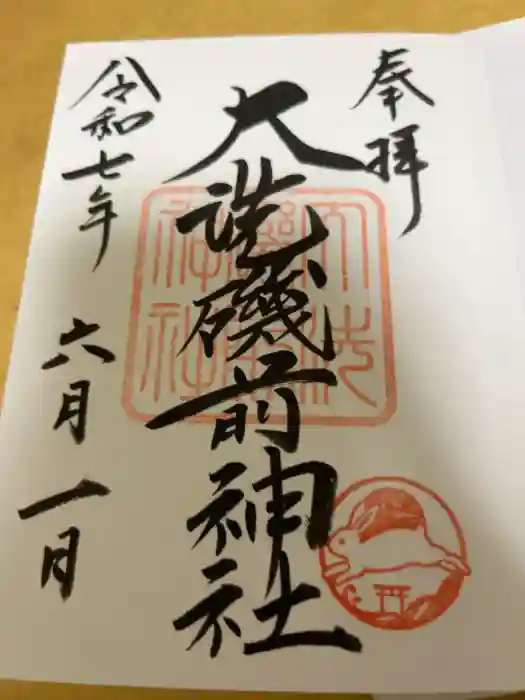 奉拝
大洗磯前神社
令和七年
六月一日